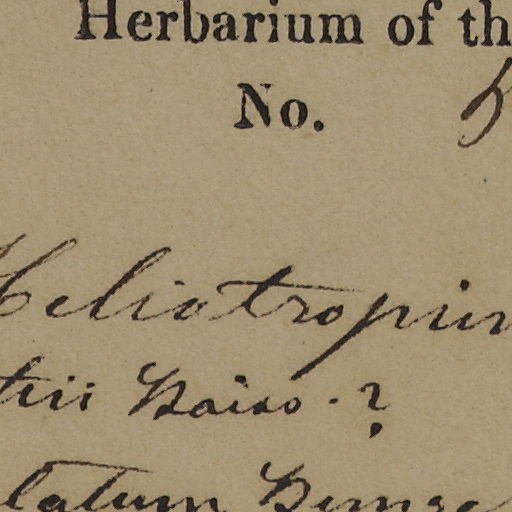 Herbarium of th
No.
Heliotropiu
tii Kais . ?
latum Bunge